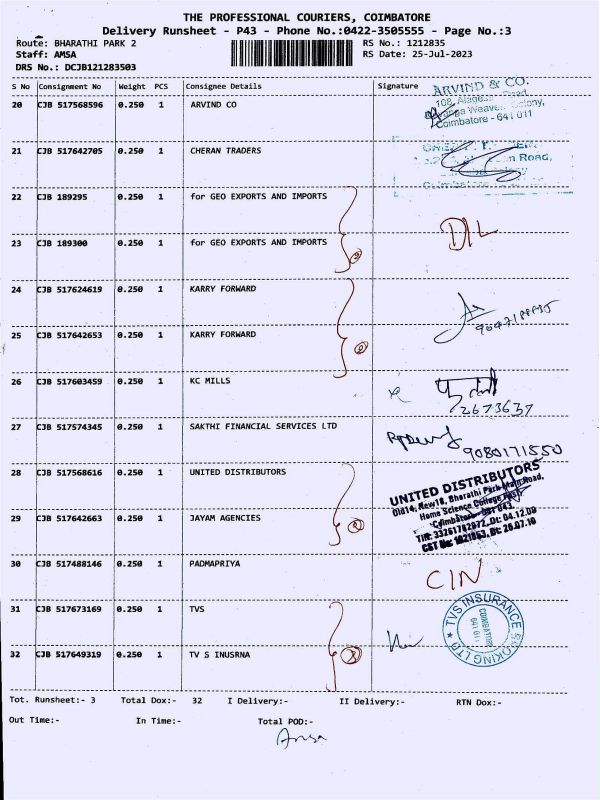 THE PROFESSIONAL COURIERS, COIMBATORE
Delivery Runsheet - P43 - Phone No.:0422-3505555 - Page No.:3
Route: BHARATHI PARK 2 RS No.: 1212835
Staff: AMSA RS Date: 25-Jul-2023
DRS No.: DCJB121283503
S No Consignment No Weight PCS Consignee Details Signature
20 CJB 517568596 0.250 1 ARVIND CO
ARVIND & CO.
Coimbatore - 641 011
21 CJB 517642705 0.250 1 CHERAN TRADERS
Road,
22 CJB 189295 0.250 1 for GEO EXPORTS AND IMPORTS
23 CJB 189300 0.250 1 for GEO EXPORTS AND IMPORTS
DIL
24 CJB 517624619 0.250 1 KARRY FORWARD
25 CJB 517642653 0.250 1 KARRY FORWARD
26 CJB 517603459 0.250 1 KC MILLS
2673637
27 CJB 517574345 0.250 1 SAKTHI FINANCIAL SERVICES LTD
9080171550
28 CJB 517568616 0.250 1 UNITED DISTRIBUTORS
UNITED DISTRIBUTORS
Old14, New18, Bharathi Park Main Road,
Home Science College East,
29 CJB 517642663 0.250 1 JAYAM AGENCIES
30 CJB 517488146 0.250 1 PADMAPRIYA
CIN
31 CJB 517673169 0.250 1 TVS
TVS INSURANCE BROKING LTD
COIMBATORE
641 011
32 CJB 517649319 0.250 1 TV S INUSRNA
Tot. Runsheet:- 3 Total Dox:- 32 I Delivery:- II Delivery:- RTN Dox:-
Out Time:- In Time:- Total POD:-
Amsa